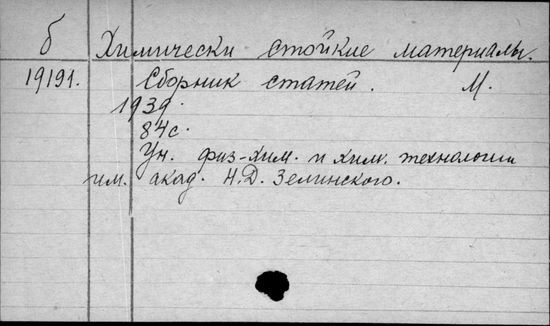 б Химически стойкие материалы.
19191. Сборник статей. М.
1939.
84с.
Ун. физ-хим. и хим. технологии
им. акад. Н.Д. Зелинского.